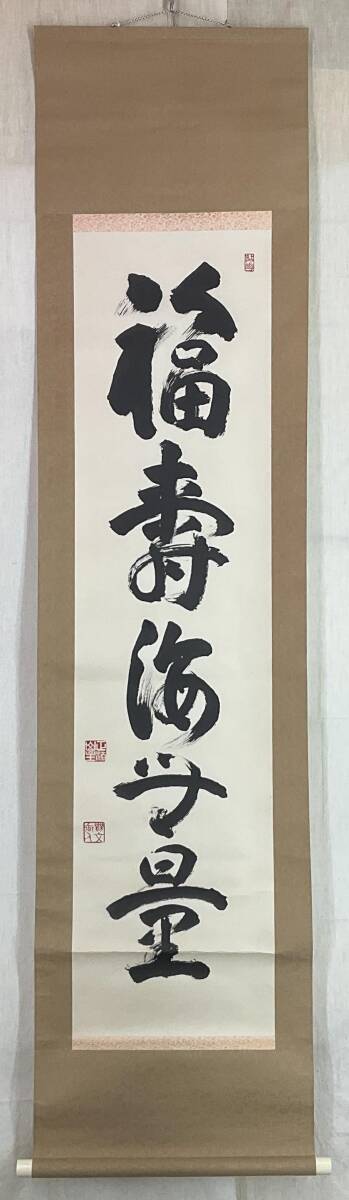 福壽海無量